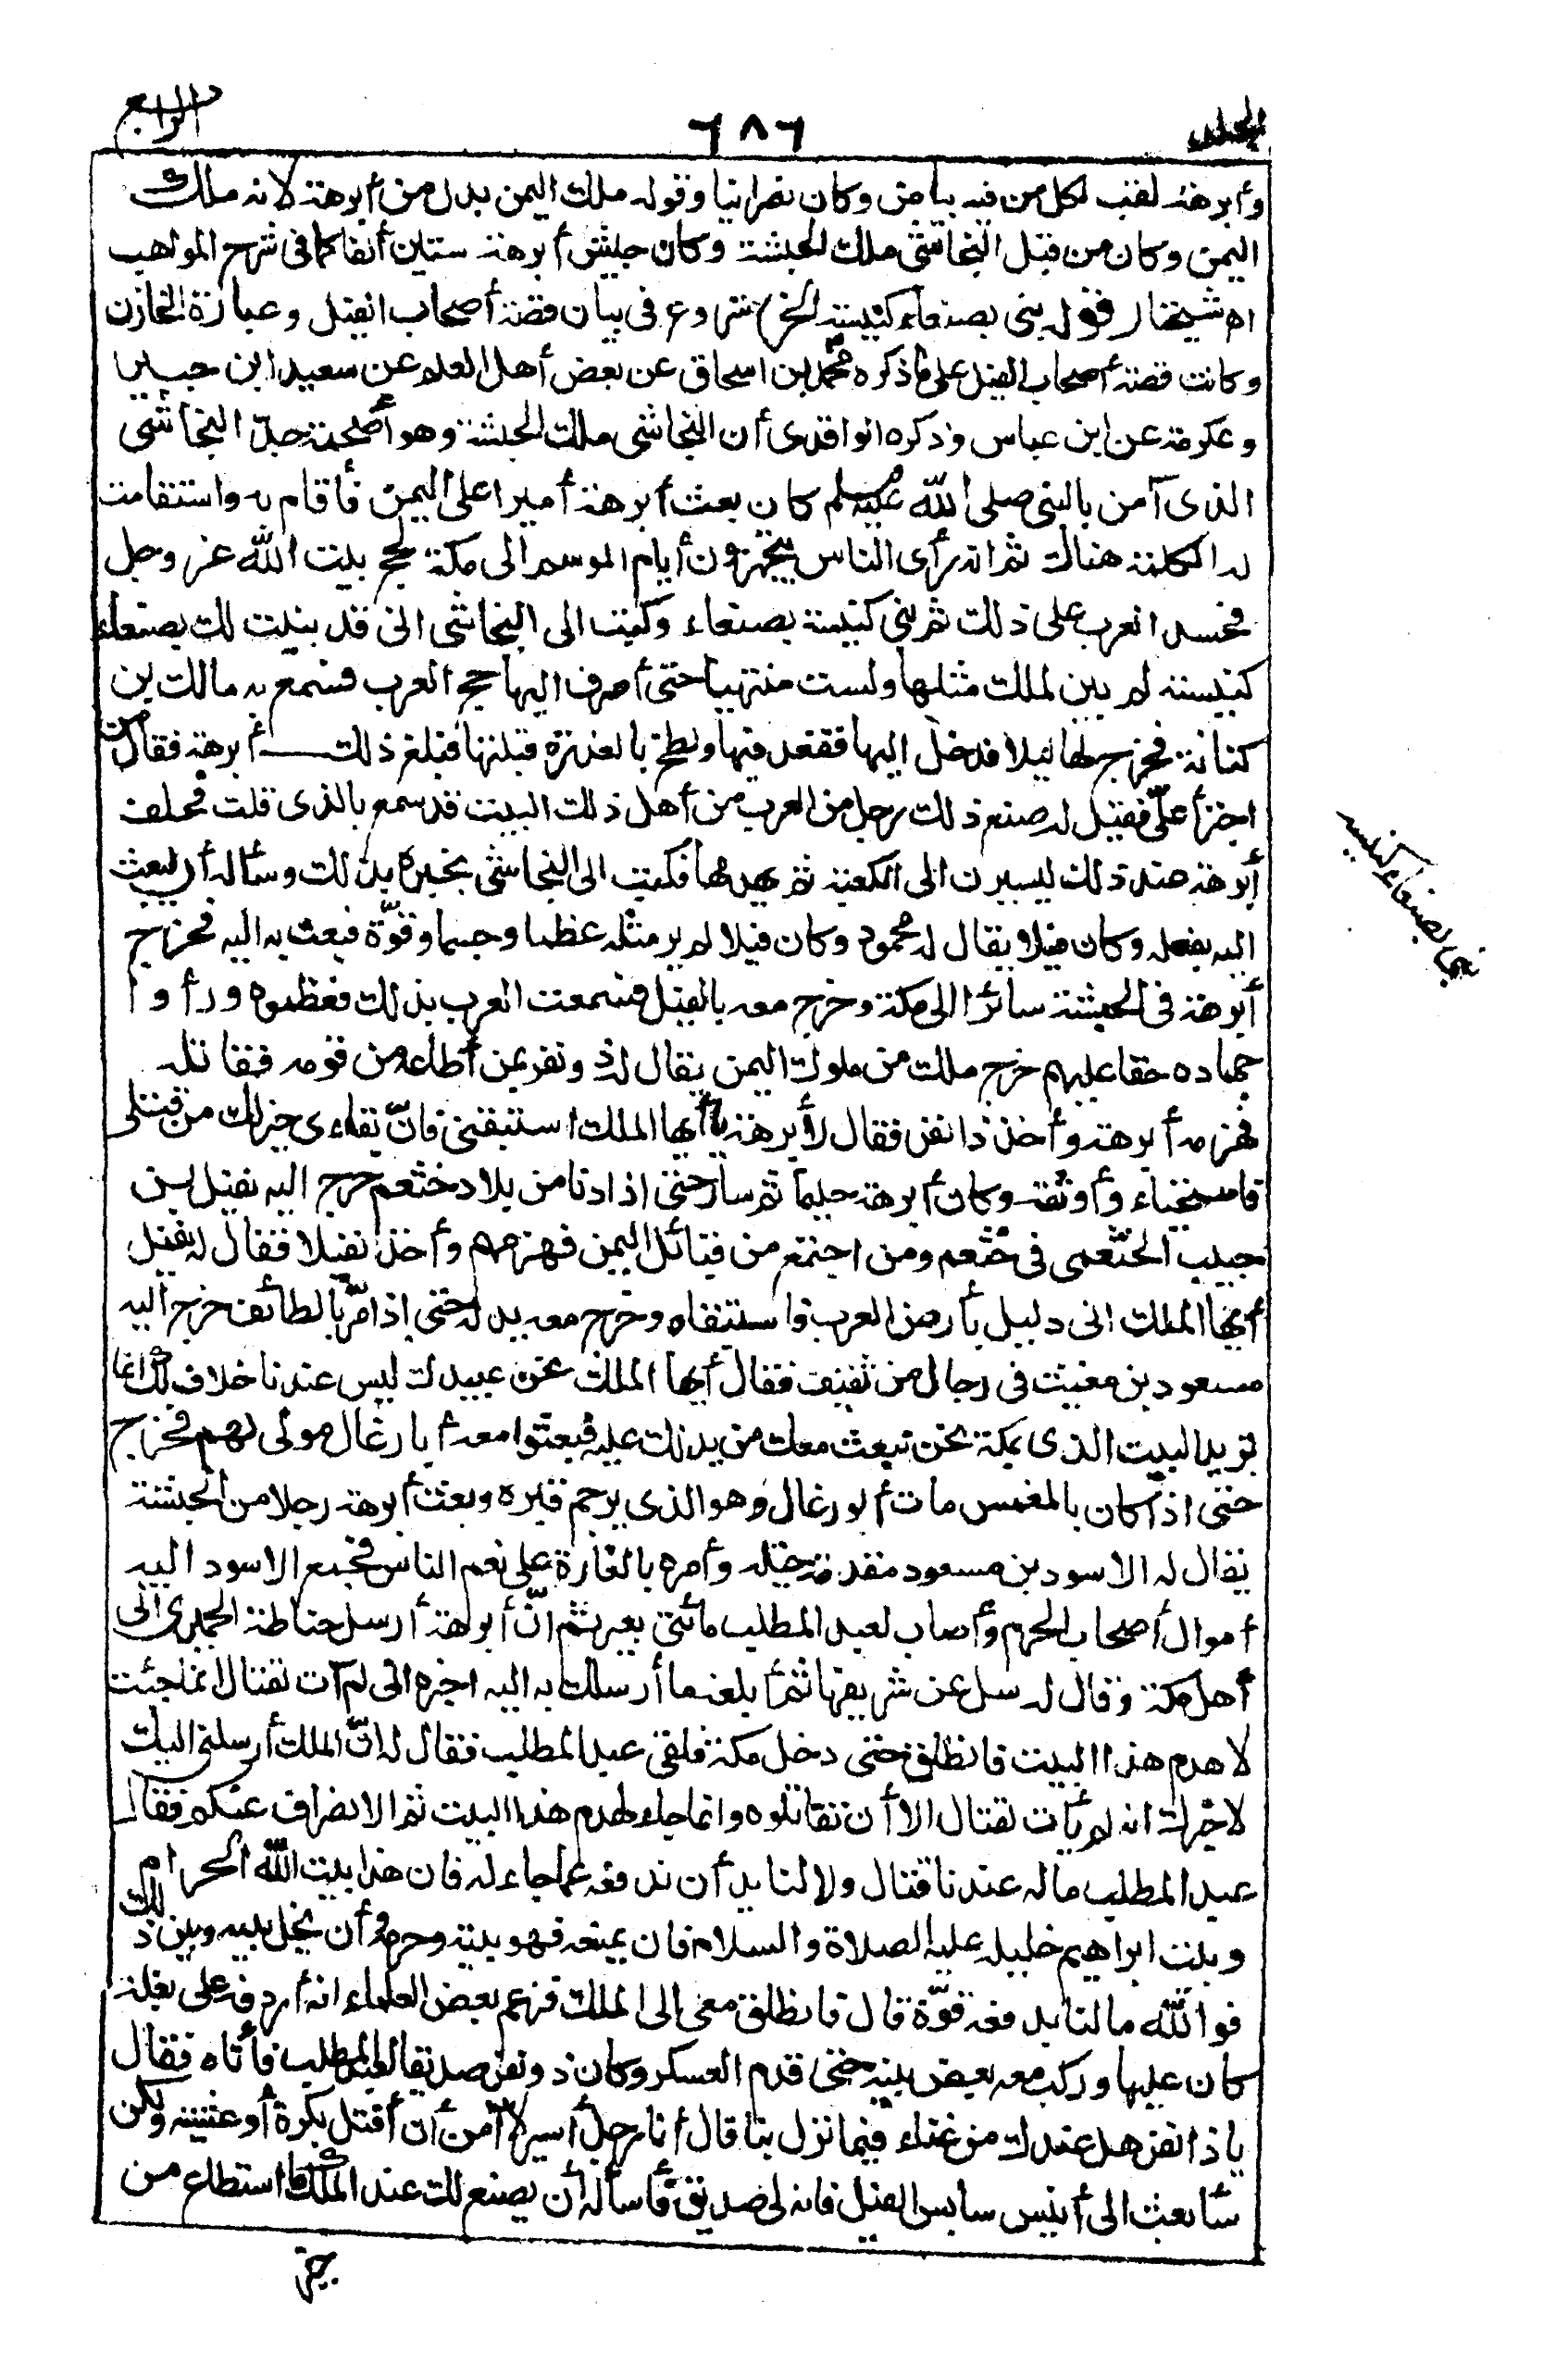 المجلد
٦٨٦
الرابع
وأبرهة لقب لكل من فيه بياض وكان نصرانيا وقوله ملك اليمن بدل من أبرهة لانه ملك
اليمن وكان من قبل النجاشى ملك الحبشة وكان جيش أبرهة ستين ألفا كما فى شرح المواهب
اه شيخنا (قوله بنى بصنعاء كنيسة الخ) شروع فى بيان قصة أصحاب الفيل وعبارة الخازن
وكانت قصة أصحاب الفيل على ما ذكره محمد بن اسحاق عن بعض أهل العلم عن سعيد ابن جبير
وعكرمة عن ابن عباس وذكره الواقدى أن النجاشى ملك الحبشة وهو أصحمة جد النجاشى
الذى آمن بالنبى صلى الله عليه وسلم كان بعث أبرهة أميرا على اليمن فأقام به واستقامت
له الكلمة هناك ثم انه رأى الناس يتجهزون أيام الموسم الى مكة لحج بيت الله عز وجل
فحسد العرب على ذلك ثم بنى كنيسة بصنعاء وكتب الى النجاشى انى قد بنيت لك بصنعاء
كنيسة لم يبن لملك مثلها ولست منتهيا حتى أصرف اليها حج العرب فسمع به مالك بن
كنانة فخرج لها ليلا فدخل اليها فقعد فيها ولطخ بالعذرة قبلتها فبلغ ذلك أبرهة فقال من
اجترأ علىّ فقيل له صنع ذلك رجل من العرب من أهل ذلك البيت قد سمع بالذى قلت فحلف
أبرهة عند ذلك ليسيرن الى الكعبة ثم يهدمها فكتب الى النجاشى يخبره بذلك وسأله أن يبعث
اليه بفيله وكان فيلا يقال له محمود وكان فيلا لم ير مثله عظما وجسما وقوّة فبعث به اليه فخرج
أبرهة فى الحبشة سائرا الى مكة وخرج معه بالفيل فسمعت العرب بذلك فعظموه ورأوا
جهاده حقا عليهم خرج ملك من ملوك اليمن يقال له ذو نفر بمن أطاعه من قومه فقاتله
فهزمه أبرهة وأخذ ذا نفر فقال لأبرهة يا أيها الملك استبقنى فانّ بقاءى خير لك من قتلى
فاستحياه وأوثقه وكان أبرهة حليما ثم سار حتى اذا دنا من بلاد خثعم خرج اليه نفيل بن
حبيب الخثعمى فى خثعم ومن اجتمع من قبائل اليمن فهزمهم وأخذ نفيلا فقال له نفيل
أيها الملك انى دليل بأرض العرب فاستبقاه وخرج معه يدله حتى اذا مرّ بالطائف خرج اليه
مسعود بن مغيث فى رجال من ثقيف فقال أيها الملك نحن عبيدك ليس عندنا خلاف لك انما
تريد البيت الذى بمكة نحن نبعث معك من يدلك عليه فبعثوا معه أبا رغال مولى لهم فخرج
حتى اذا كان بالمغمس مات أبو رغال وهو الذى يرجم قبره وبعث أبرهة رجلا من الحبشة
يقال له الاسود بن مسعود مقدمة خيله وأمره بالغارة على نعم الناس فجمع الاسود اليه
أموال أصحاب الحرم وأصاب لعبد المطلب مائتى بعير ثم انّ أبرهة أرسل حناطة الحميرى الى
أهل مكة وقال له سل عن شريفها ثم أبلغه ما أرسلك به اليه اخبره انى لم آت لقتال انما جئت
لاهدم هذا البيت فانطلق حتى دخل مكة فلقى عبد المطلب فقال له انّ الملك أرسلنى اليك
لاخبرك انه لم يأت لقتال الا أن تقاتلوه وانما جاء لهدم هذا البيت ثم الانصراف عنكم فقال
عبد المطلب ما له عندنا قتال ولا لنا يد أن ندفعه عما جاء له فان هذا بيت الله الحرام
وبيت ابراهيم خليله عليه الصلاة والسلام فان يمنعه فهو بيته وحرمه وأن يخل بينه وبين ذلك
فوالله ما لنا بدفعه قوّة قال فانطلق معى الى الملك فزعم بعض العلماء انه أردفه على بغلة
كان عليها وركب معه بعض بنيه حتى قدم العسكر وكان ذو نفر صديقا لعبد المطلب فأتاه فقال
يا ذا نفر هل عندك من غناء فيما نزل بنا قال أنا رجل أسير لا آمن أن أقتل بكرة أو عشية ولكن
سأبعث الى أنيس سايس الفيل فانه لى صديق فأسأله أن يصنع لك عند الملك ما استطاع من
بنى بصنعاء كنيسة